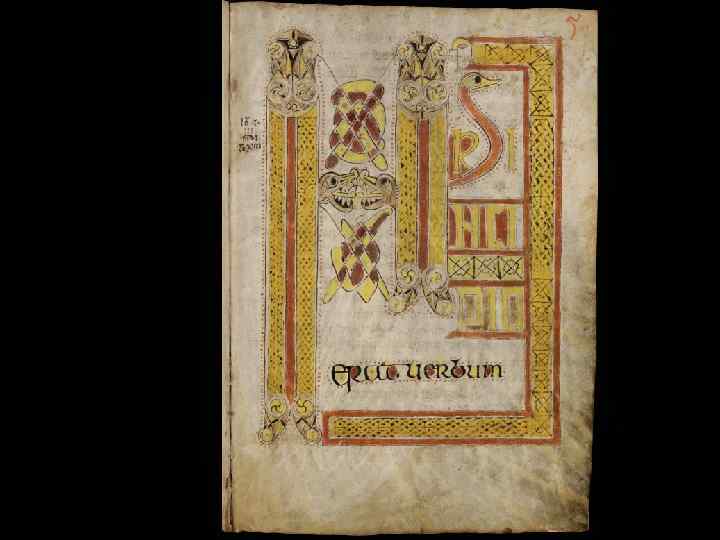 IN PRI
NCI
PIO
Erat uerbum